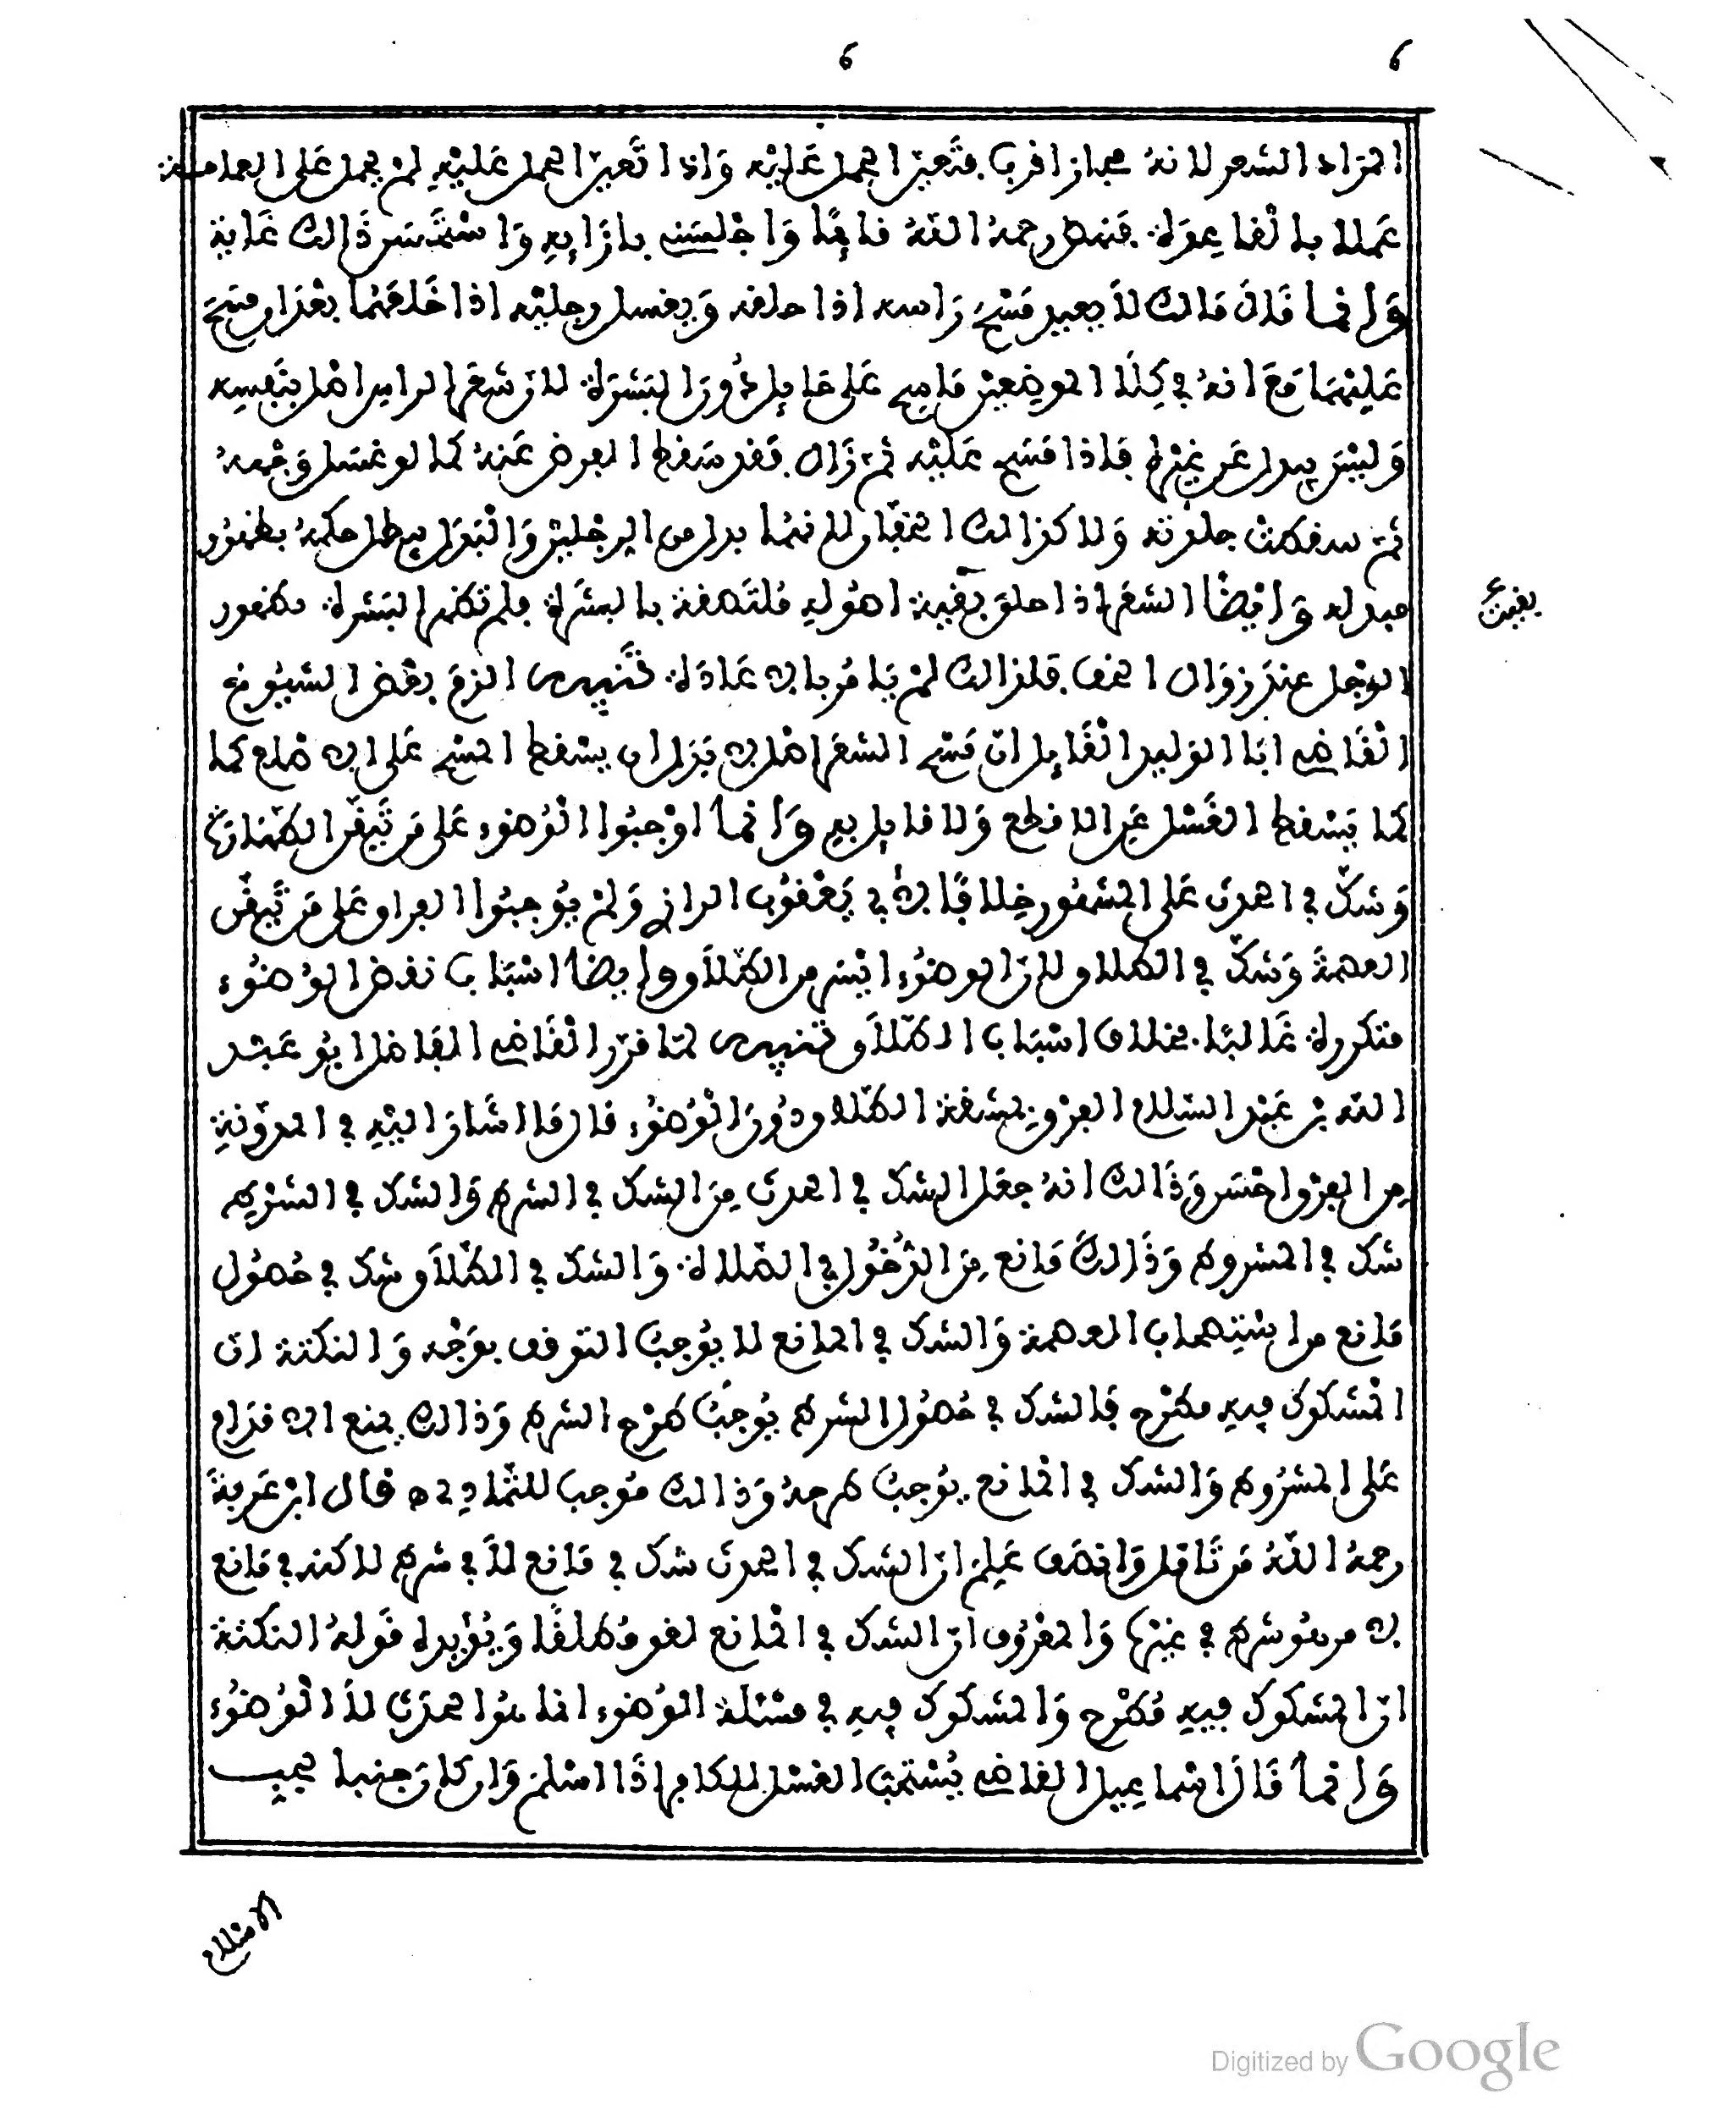 6 6
المراد الشعر لانه مجاز اقرب فتعين الحمل عليه واذا تعين الحمل عليه لم يحمل على العمامة
عملا بالقاعدة فنهض رحمه الله قائما واجلسني بازايه واستحسن ذالك غاية
وإنما قال مالك لا يعيد مسح راسه اذا حلقه ويغسل رجليه اذا خلعهما بعد ان مسح
عليهما مع انه في كلا الموضعين ماسح على حايل دون البشرة لان شعر الراس اصل بنفسه
وليس ببدل عن غيره فاذا مسح عليه ثم زال فقد سقط الفرض عنه كما لو غسل وجهه
ثم سقطت جلدته ولا كذالك الخفان لانهما بدل من الرجلين والبدل يبطل حكمه بظهور
مبدله وايضا الشعر اذا حلق بقية اصوله ملتصقة بالبشرة فلم تظهر البشرة كظهور
الرجل عند زوال الخف فلذالك لم يامر بالاعادة تنبيه الزم بعض الشيوخ
القاضي ابا الوليد القايل ان مسح الشعر اصل لا بدل ان يسقط المسح على الاصلع كما
كما يسقط الغسل عن الاقطع ولا قايل به وإنما اوجبوا الوضوء على من تيقن الطهارة
وشك في الحدث على المشهور خلافا لابي يعقوب الرازي ولم يوجبوا الفراق على من تيقن
العصمة وشك في الطلاق لان الوضوء ايسر من الطلاق وايضا اسباب نقض الوضوء
متكررة غالبا بخلاف اسباب الطلاق تنبيه لما قرر القاضي الفاضل ابو عبد
الله بن عبد السلام الفرق لمشقة الطلاق دون الوضوء قال ما اشار اليه في المدونة
من الفرق احسن وذالك انه جعل الشك في الحدث من الشك في الشرط والشك في الشرط
شك في المشروط وذالك مانع من الدخول في الصلاة والشك في الطلاق شك في حصول
مانع من استصحاب العصمة والشك في المانع لا يوجب التوقف بوجه والنكتة ان
المشكوك فيه مطرح فالشك في حصول الشرط يوجب طرح الشرط وذالك يمنع الاقدام
على المشروط والشك في المانع يوجب طرحه وذالك موجب للتمادي اه قال ابن عرفة
رحمه الله من تامل وانصف علم ان الشك في الحدث شك في مانع لا في شرط لاكنه في مانع
لا من هو شرط في غيره والمعروف ان الشك في المانع لغو مطلقا ويؤيده قوله النكتة
ان المشكوك فيه مطرح والمشكوك فيه في مسئلة الوضوء انما هو الحدث لا الوضوء
وإنما قال اسماعيل القاضي يستحب الغسل للكافر اذا اسلم وان كان جنبا لجب
بقيت
الاسلام
Digitized by Google